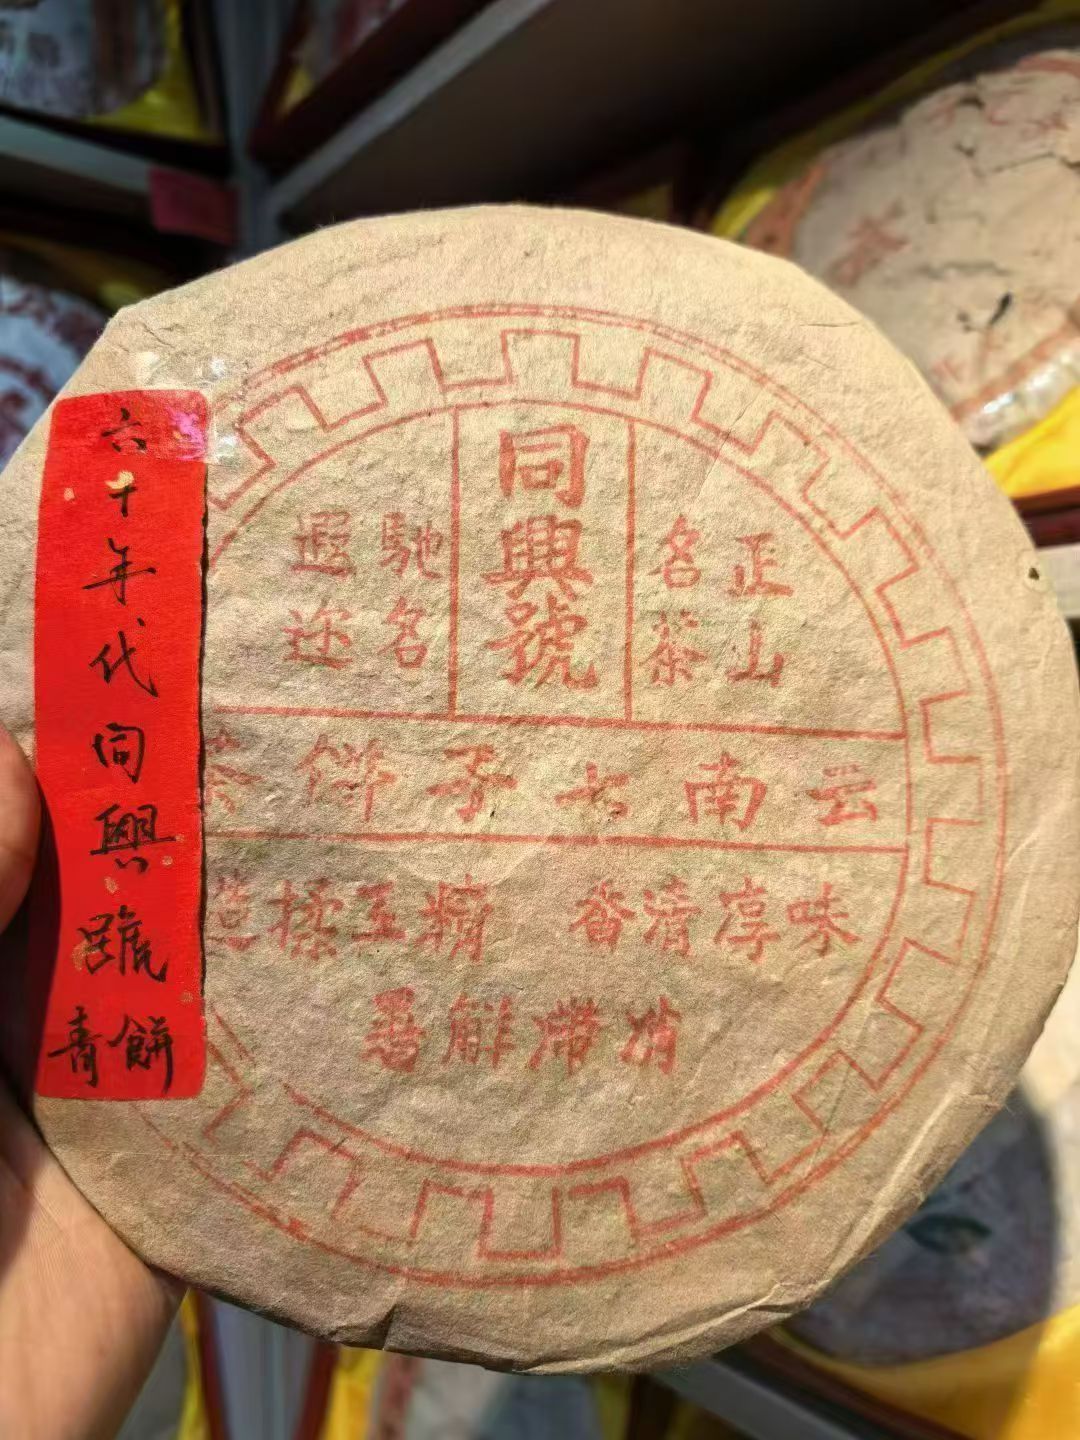 六十年代同興號
青餅
同興號
正山
名茶
馳名
遐迩
云南七子饼茶
味淳清香 精工揉造
消滞解暑